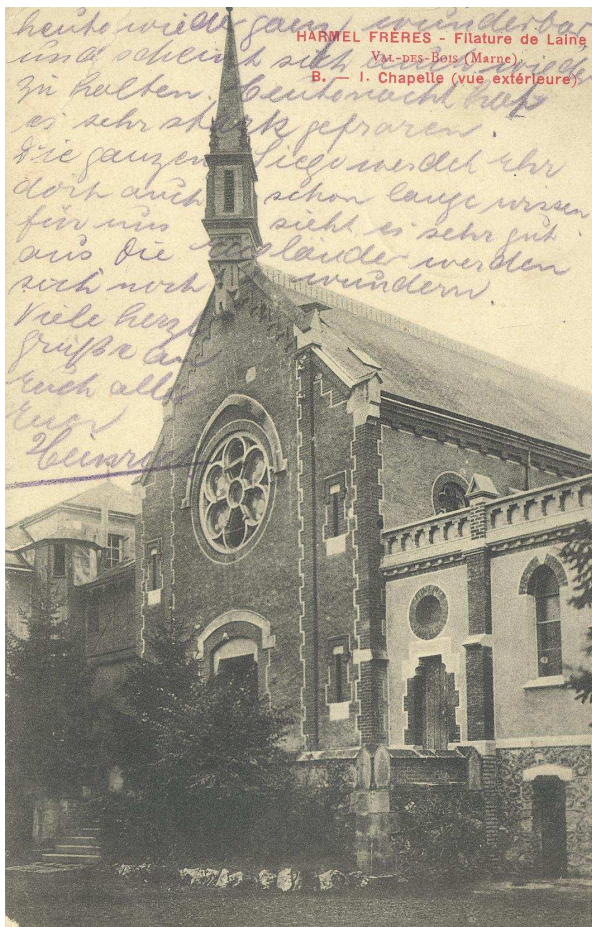 HARMEL FRÈRES - Filature de Laine
VAL-DES-BOIS (Marne)
B. — I. Chapelle (vue extérieure)
heute wieder ganz wunderbar
und scheint sich auch wieder
zu halten. Heute nacht hat
es sehr stark gefroren
Die ganzen Siege werdet Ihr
doch auch schon lange wissen
für uns sieht es sehr gut
aus die ausländer werden
sich noch wundern
Viele herzl
grüße an
Euch alle
Euer
Heinrich